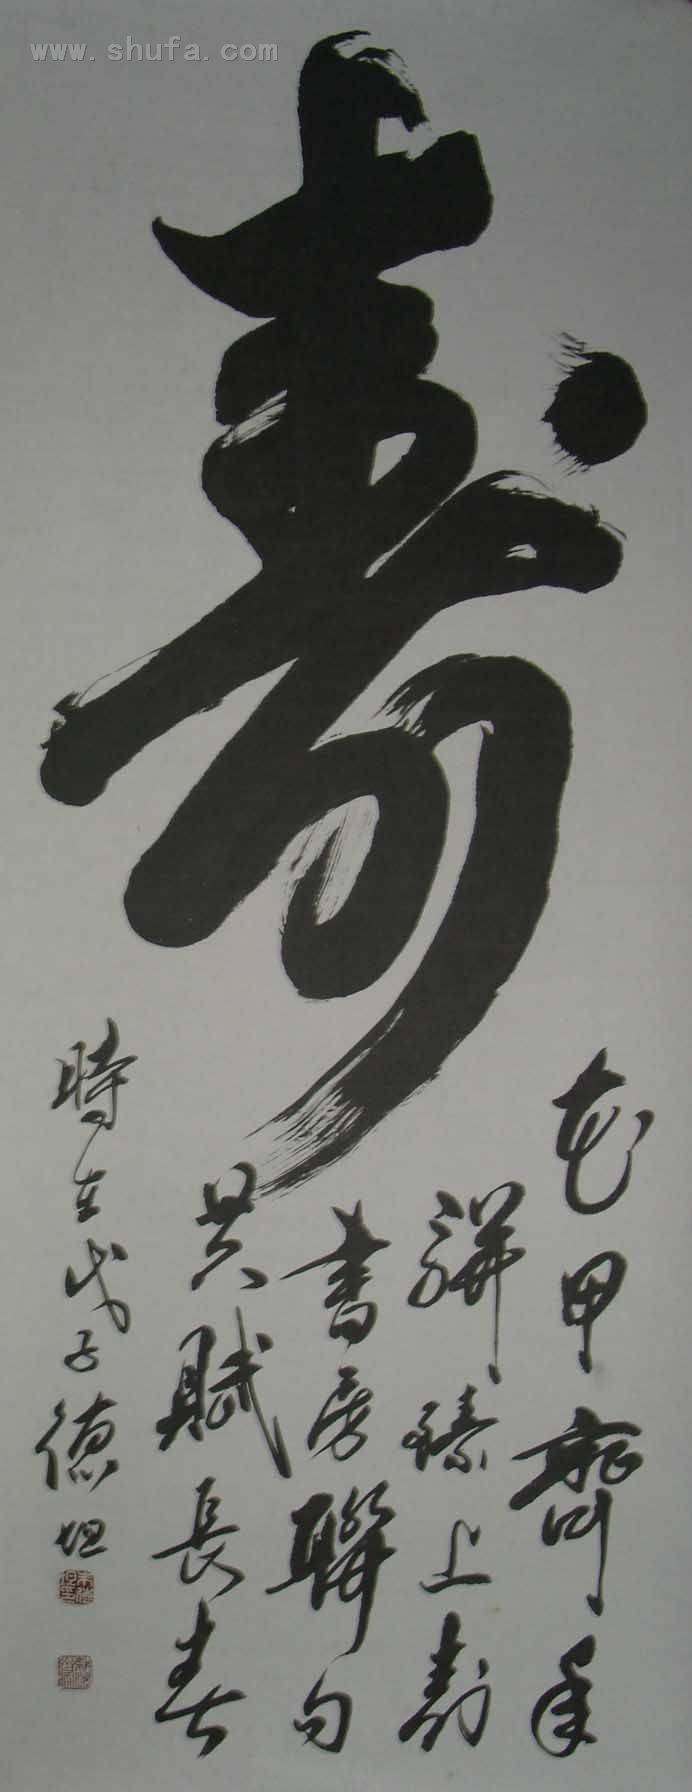 www.shufa.com
壽
花甲齊年
駢臻上壽
書房聯句
共賦長春
時在戊子德坦